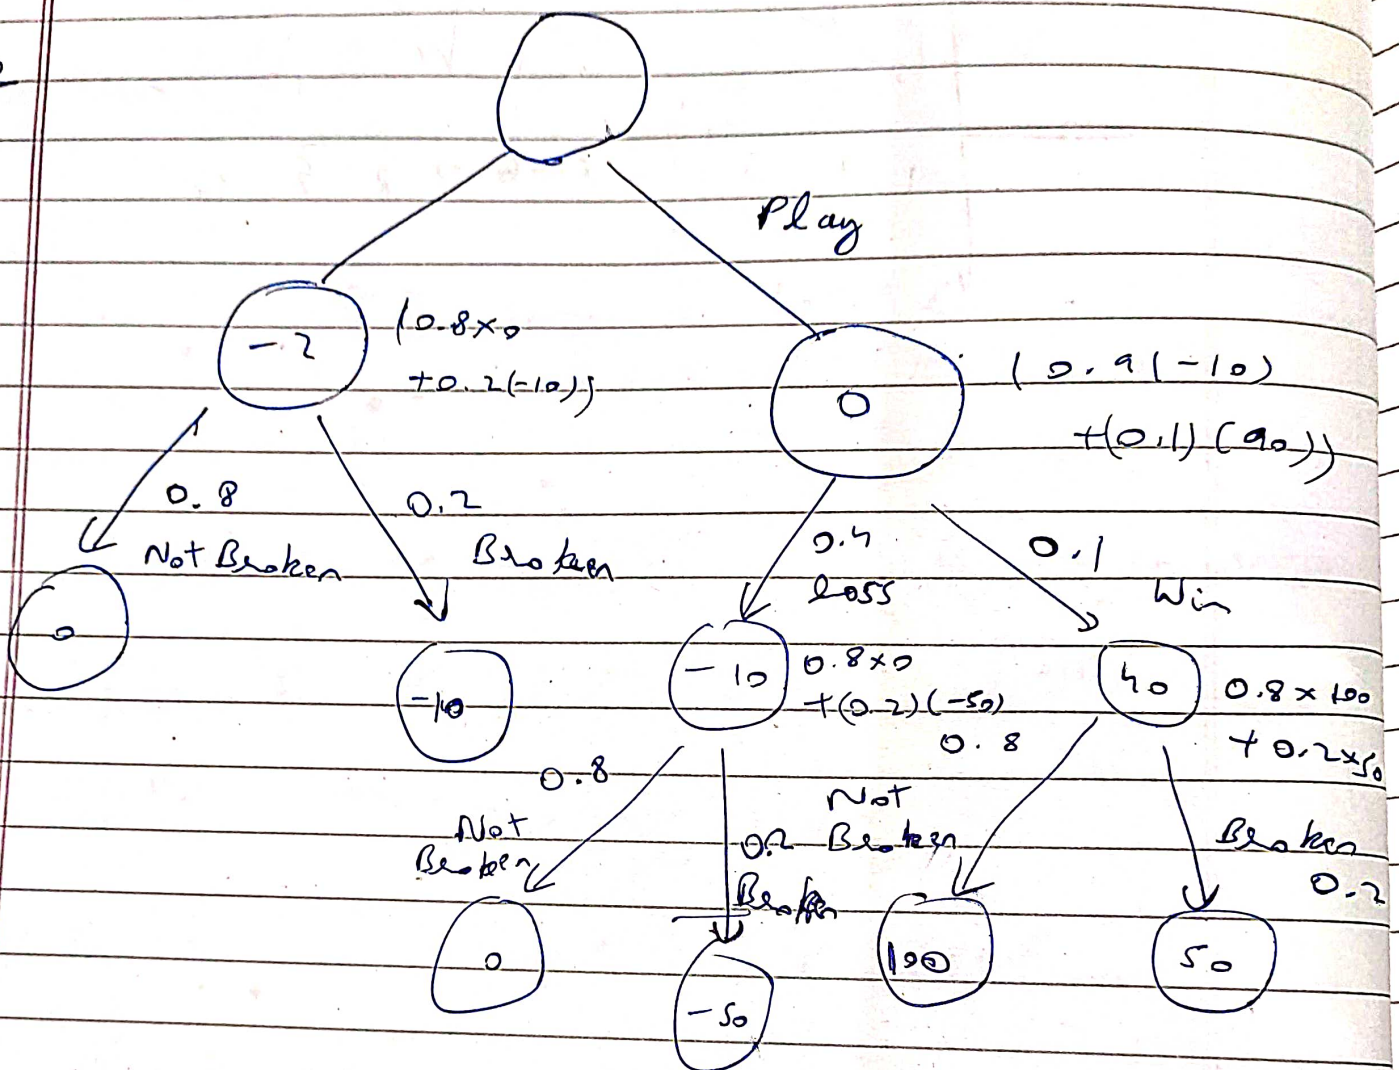 Play
-2
(0.8×0
+0.2(-10))
0
(0.9(-10)
+(0.1)(90))
0.8
Not Broken
0.2
Broken
0.9
loss
0.1
Win
0
-10
-10
0.8×0
+(0.2)(-50)
90
0.8×100
+0.2×50
0.8
Not
Broken
0.2
Broken
0.8
Not
Broken
Broken
0.2
0
-50
100
50